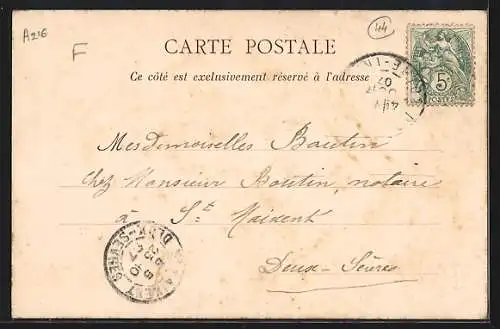 A236
F
44
CARTE POSTALE
Ce côté est exclusivement réservé à l'adresse
5
POSTES
Mesdemoiselles Boutin
Chez Monsieur Boutin, notaire
à St Maixent
Deux-Sèvres
DEUX-SEVRES